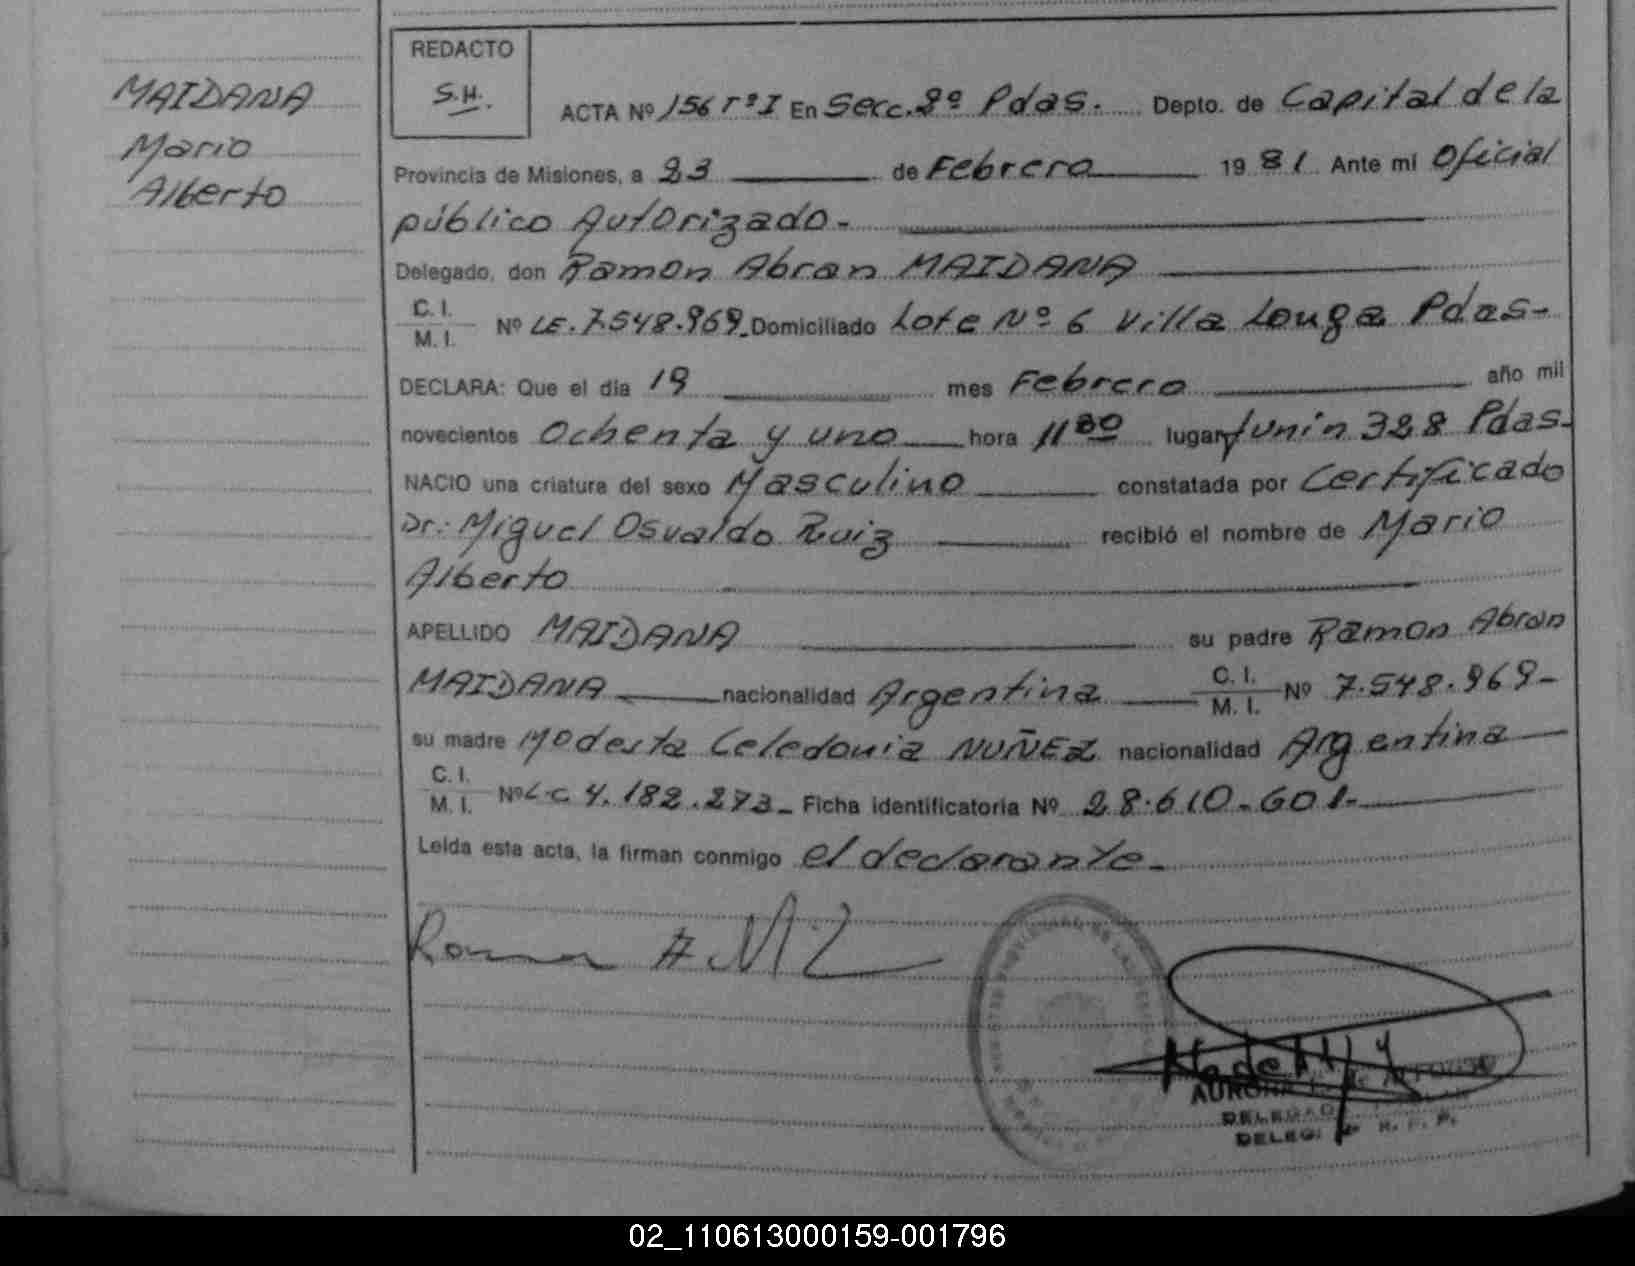 MAIDANA
Mario
Alberto
REDACTO
S.H.
ACTA Nº 156 TºI En Secc. 2º Pdas. Depto. de Capital de la
Provincia de Misiones, a 23 de Febrero 1981. Ante mi Oficial
público Autorizado.-
Delegado, don Ramon Abran MAIDANA
C. I.
M. I. Nº LE. 7.548.969. Domiciliado Lote Nº 6 Villa Longa Pdas-
DECLARA: Que el día 19 mes Febrero año mil
novecientos Ochenta y uno hora 11 30 lugar Junín 328 Pdas.
NACIO una criatura del sexo Masculino constatada por Certificado
Dr: Miguel Osvaldo Ruiz recibió el nombre de Mario
Alberto
APELLIDO MAIDANA su padre Ramon Abran
MAIDANA nacionalidad Argentina C. I. M. I. Nº 7.548.969-
su madre Modesta Celedonia NUÑEZ nacionalidad Argentina
C. I.
M. I. Nº L.C. 4.182.273- Ficha identificatoria Nº 28.610.601.-
Leída esta acta, la firman conmigo el declarante-
DELEG
02_110613000159-001796